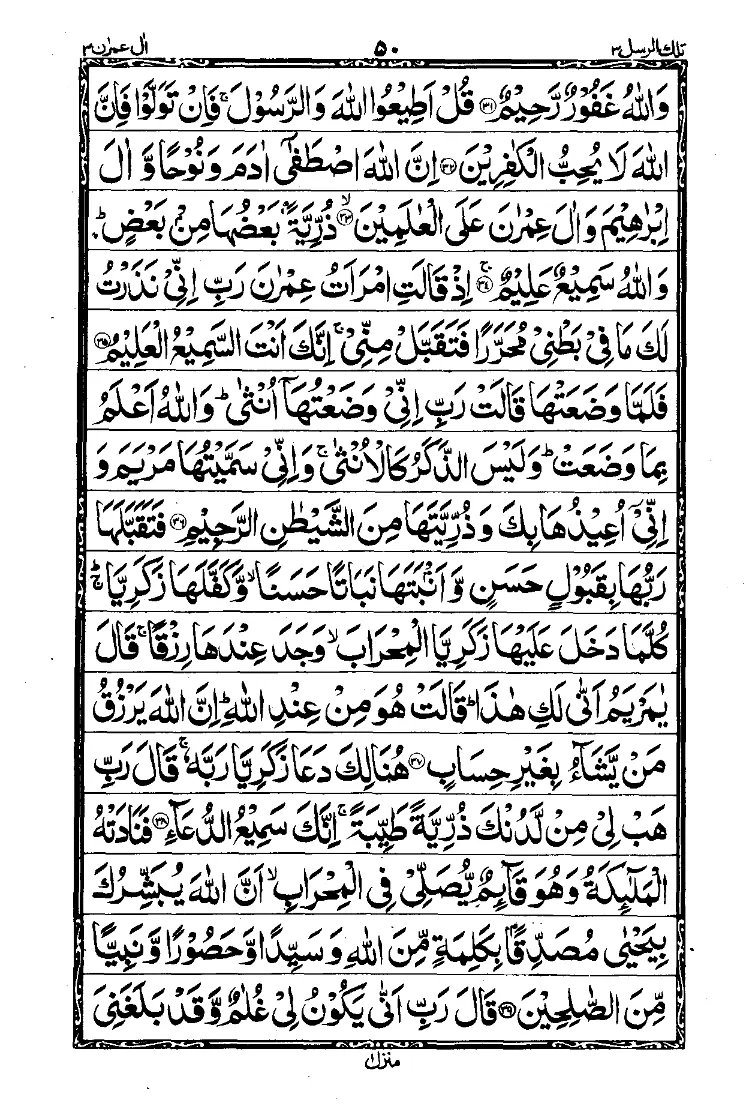 تلك الرسل ٣ ٥٠ اٰل عمرٰن ٣
وَاللّٰهُ غَفُوْرٌ رَّحِيْمٌ ﴿٣١﴾ قُلْ اَطِيْعُوا اللّٰهَ وَالرَّسُوْلَ ۚ فَاِنْ تَوَلَّوْا فَاِنَّ
اللّٰهَ لَا يُحِبُّ الْكٰفِرِيْنَ ﴿٣٢﴾ اِنَّ اللّٰهَ اصْطَفٰۤى اٰدَمَ وَنُوْحًا وَّ اٰلَ
اِبْرٰهِيْمَ وَاٰلَ عِمْرٰنَ عَلَى الْعٰلَمِيْنَ ﴿٣٣﴾ۙ ذُرِّيَّةًۢ بَعْضُهَا مِنْۢ بَعْضٍ ؕ
وَاللّٰهُ سَمِيْعٌ عَلِيْمٌ ﴿٣٤﴾ۚ اِذْ قَالَتِ امْرَاَتُ عِمْرٰنَ رَبِّ اِنِّيْ نَذَرْتُ
لَكَ مَا فِيْ بَطْنِيْ مُحَرَّرًا فَتَقَبَّلْ مِنِّيْ ۚ اِنَّكَ اَنْتَ السَّمِيْعُ الْعَلِيْمُ ﴿٣٥﴾
فَلَمَّا وَضَعَتْهَا قَالَتْ رَبِّ اِنِّيْ وَضَعْتُهَاۤ اُنْثٰى ؕ وَاللّٰهُ اَعْلَمُ
بِمَا وَضَعَتْ ؕ وَلَيْسَ الذَّكَرُ كَالْاُنْثٰى ۚ وَاِنِّيْ سَمَّيْتُهَا مَرْيَمَ وَ
اِنِّيْۤ اُعِيْذُهَا بِكَ وَذُرِّيَّتَهَا مِنَ الشَّيْطٰنِ الرَّجِيْمِ ﴿٣٦﴾ فَتَقَبَّلَهَا
رَبُّهَا بِقَبُوْلٍ حَسَنٍ وَّاَنْۢبَتَهَا نَبَاتًا حَسَنًا ۙ وَّكَفَّلَهَا زَكَرِيَّا ؕۚ
كُلَّمَا دَخَلَ عَلَيْهَا زَكَرِيَّا الْمِحْرَابَ ۙ وَجَدَ عِنْدَهَا رِزْقًا ۚ قَالَ
يٰمَرْيَمُ اَنّٰى لَكِ هٰذَا ؕ قَالَتْ هُوَ مِنْ عِنْدِ اللّٰهِ ؕ اِنَّ اللّٰهَ يَرْزُقُ
مَنْ يَّشَآءُ بِغَيْرِ حِسَابٍ ﴿٣٧﴾ هُنَالِكَ دَعَا زَكَرِيَّا رَبَّهٗ ۚ قَالَ رَبِّ
هَبْ لِيْ مِنْ لَّدُنْكَ ذُرِّيَّةً طَيِّبَةً ۚ اِنَّكَ سَمِيْعُ الدُّعَآءِ ﴿٣٨﴾ فَنَادَتْهُ
الْمَلٰٓئِكَةُ وَهُوَ قَآئِمٌ يُّصَلِّيْ فِي الْمِحْرَابِ ۙ اَنَّ اللّٰهَ يُبَشِّرُكَ
بِيَحْيٰى مُصَدِّقًۢا بِكَلِمَةٍ مِّنَ اللّٰهِ وَسَيِّدًا وَّحَصُوْرًا وَّنَبِيًّا
مِّنَ الصّٰلِحِيْنَ ﴿٣٩﴾ قَالَ رَبِّ اَنّٰى يَكُوْنُ لِيْ غُلٰمٌ وَّقَدْ بَلَغَنِيَ
منزل ١